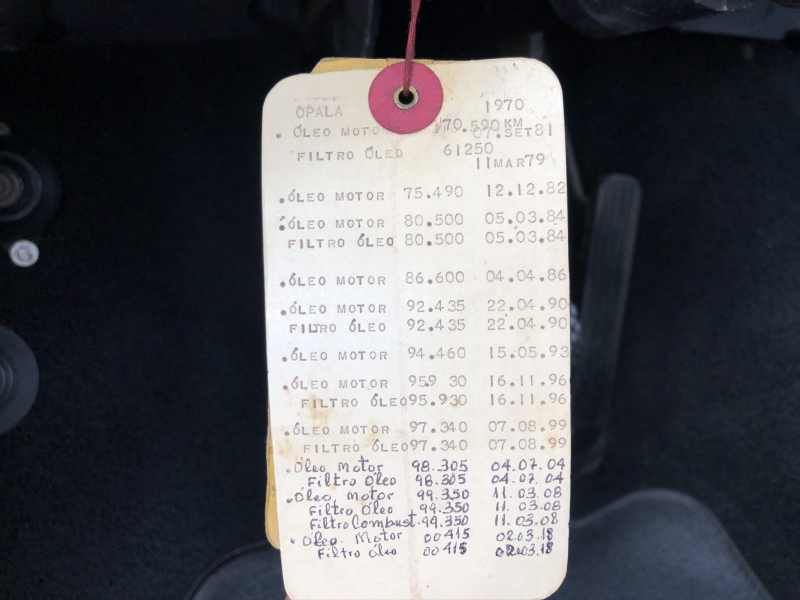 OPALA 1970
. ÓLEO MOTO 70.590 KM
07.SET81
FILTRO ÓLEO 61250
11MAR79
.ÓLEO MOTOR 75.490 12.12.82
.ÓLEO MOTOR 80.500 05.03.84
FILTRO ÓLEO 80.500 05.03.84
.ÓLEO MOTOR 86.600 04.04.86
.ÓLEO MOTOR 92.435 22.04.90
FILTRO ÓLEO 92.435 22.04.90
.ÓLEO MOTOR 94.460 15.05.93
.ÓLEO MOTOR 959 30 16.11.96
FILTRO ÓLEO95.930 16.11.96
.ÓLEO MOTOR 97.340 07.08.99
FILTRO ÓLEO97.340 07.08.99
.Óleo Motor 98.305 04.07.04
Filtro Óleo 98.305 04.07.04
.Óleo Motor 99.350 11.03.08
Filtro Óleo 99.350 11.03.08
Filtro Combust. 99.350 11.03.08
. Óleo Motor 00415 02.03.18
Filtro Óleo 00415 02.03.18